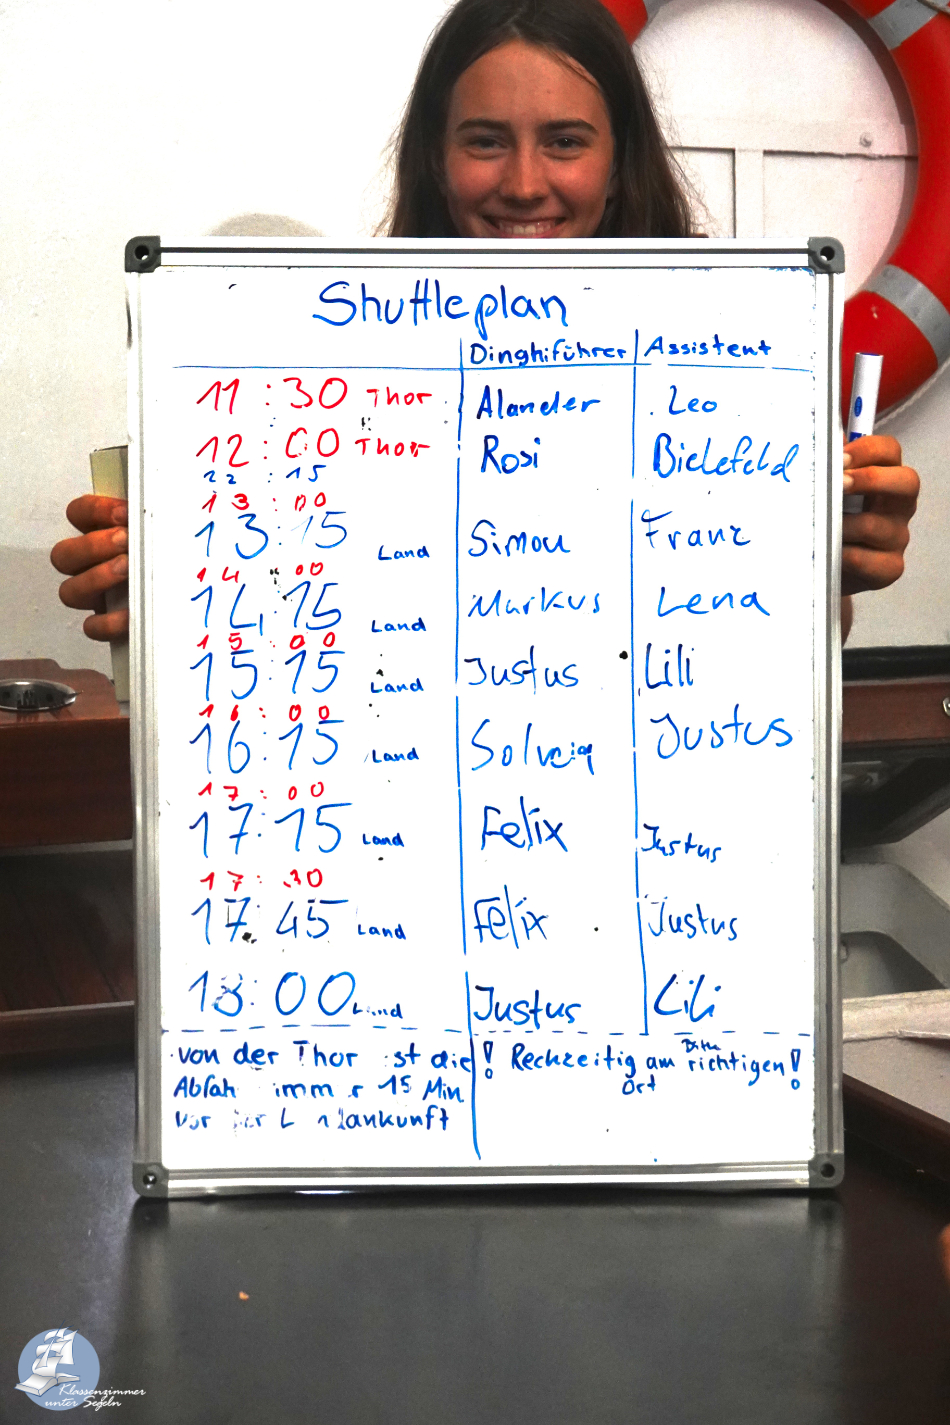 Shuttleplan
Dinghiführer Assistent
11:30 Thor Alander Leo
12:00 Thor Rosi Bielefeld
12:15
13:00
13:15 Land Simon Franz
14:00
14:15 Land Markus Lena
15:00
15:15 Land Justus Lili
16:00
16:15 Land Solveig Justus
17:00
17:15 Land Felix Justus
17:30
17:45 Land Felix Justus
18:00 Land Justus Lili
von der Thor ist die
Abfah imm r 15 Min
vor der L n dankunft
! Rechzeitig am Bitte richtigen!
Ort
Klassenzimmer
unter Segeln